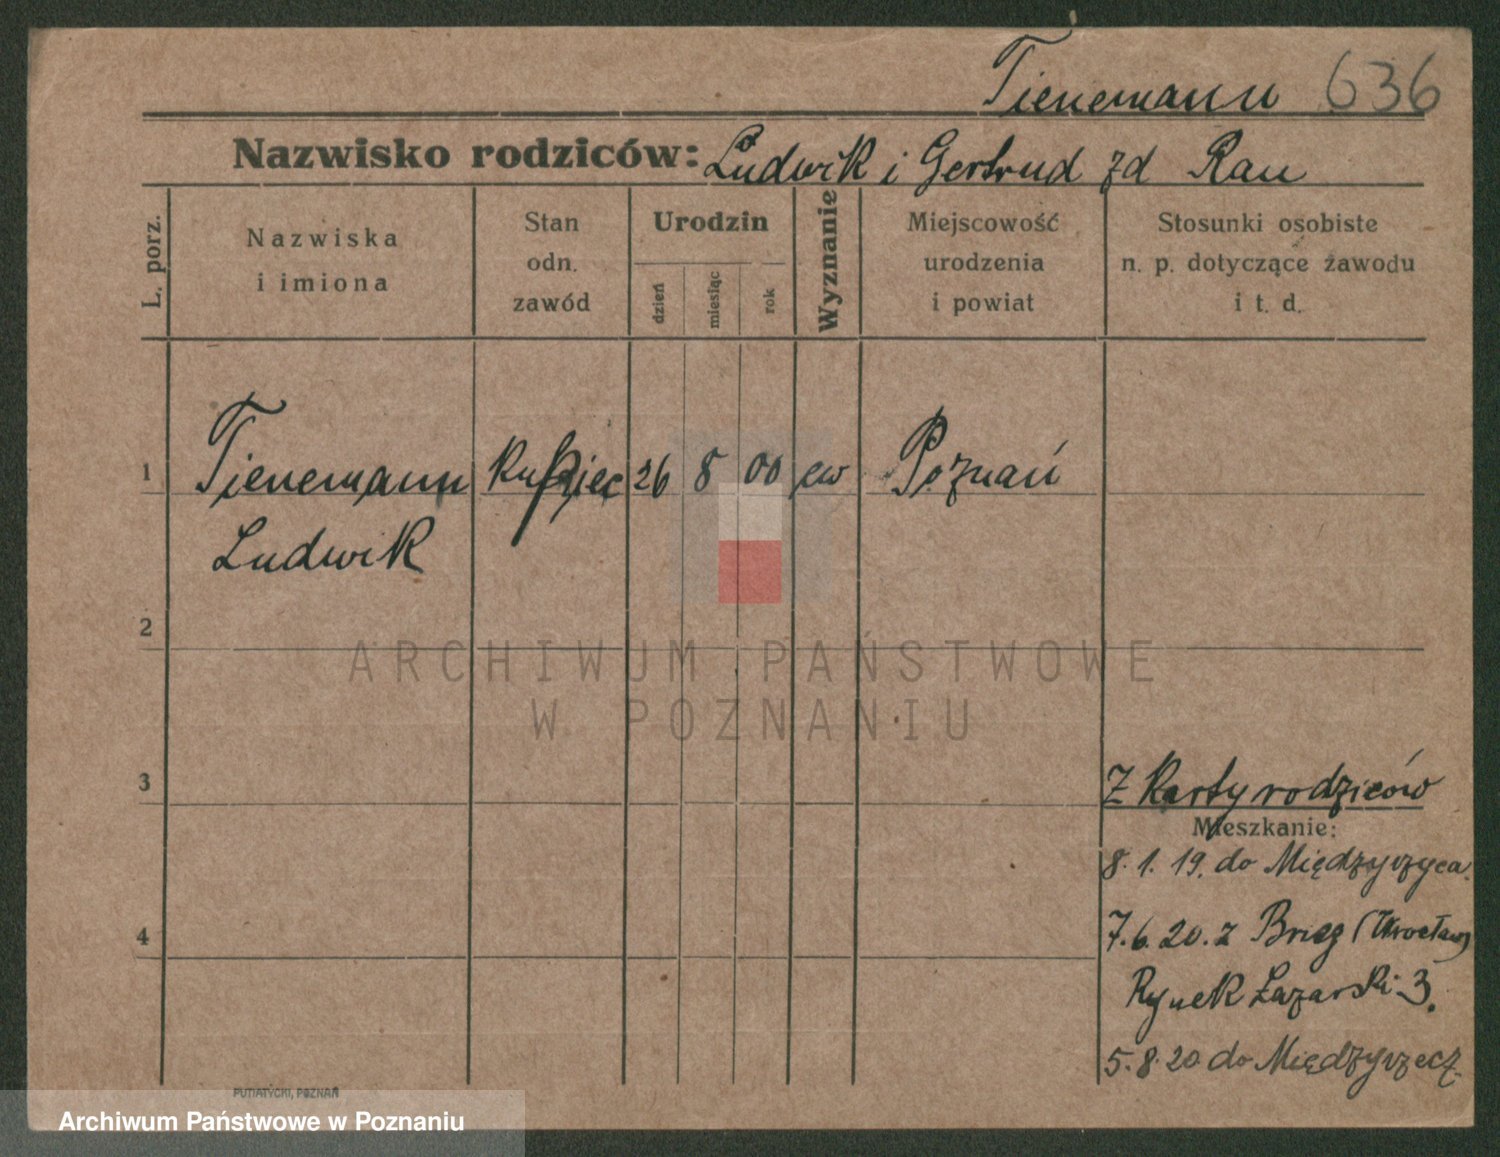 Tienemann 636
Nazwisko rodziców: Ludwik i Gertrud zd Rau
L. porz.
Nazwiska
i imiona
Stan
odn.
zawód
Urodzin
dzień
miesiąc
rok
Wyznanie
Miejscowość
urodzenia
i powiat
Stosunki osobiste
n. p. dotyczące zawodu
i t. d.
1 Tienemann kupiec 26 8 00 ew Poznań
Ludwik
2
ARCHIWUM PAŃSTWOWE
W POZNANIU
3 Z karty rodziców
Mieszkanie:
8.1.19. do Międzyrzyca.
7.6.20. z Brieg (Wrocław)
4
Rynek Łazarski 3.
5.8.20 do Międzyrzecz.
PUTIATYCKI, POZNAŃ
Archiwum Państwowe w Poznaniu